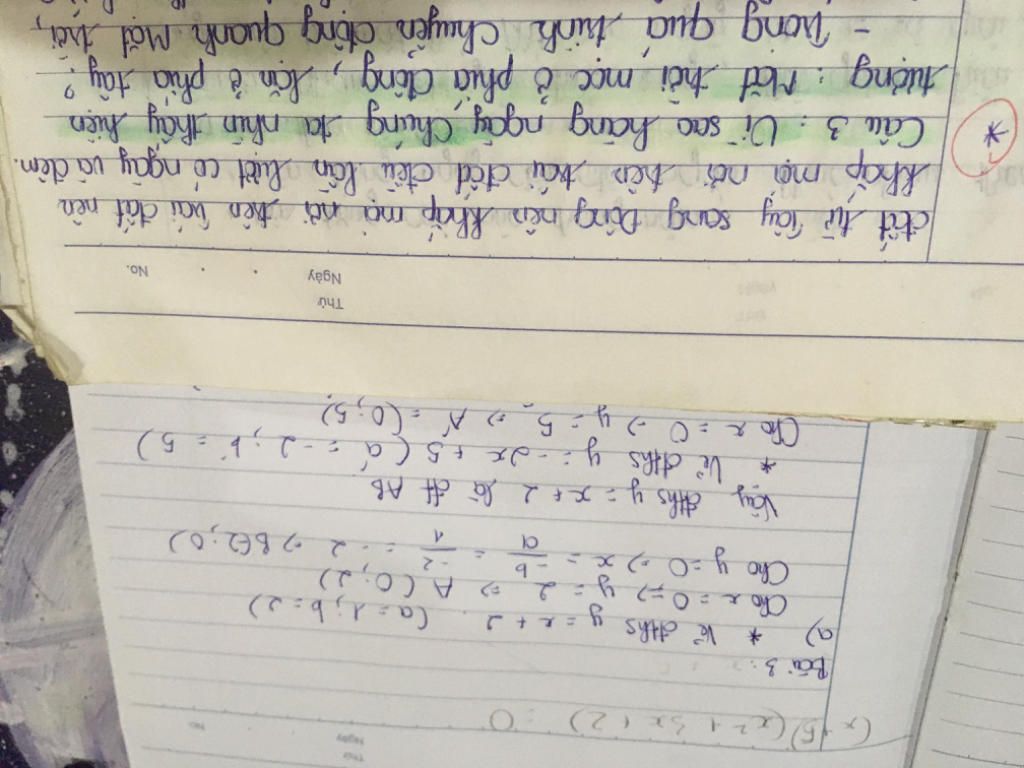 Thứ
Ngày No.
đất từ Tây sang Đông nên khắp mọi nơi trên trái đất nên
khắp mọi nơi trên trái đất đều lần lượt có ngày và đêm.
* Câu 3: Vì sao hàng ngày chúng ta nhìn thấy hiện
tượng: Mặt trời mọc ở phía đông, lặn ở phía tây?
- Trong quá trình chuyển động quanh Mặt trời,
Thứ
Ngày No.
(x+5)(x²+3x+2) = 0
Bài 3:
a) * Vẽ đths y = x + 2 (a = 1; b = 2)
Cho x = 0 => y = 2 => A (0; 2)
Cho y = 0 => x = -b/a = -2/1 = -2 => B(-2; 0)
Vậy đths y = x + 2 là đt AB
* Vẽ đths y = -2x + 5 (a' = -2; b' = 5)
Cho x = 0 => y = 5 => A' = (0; 5)